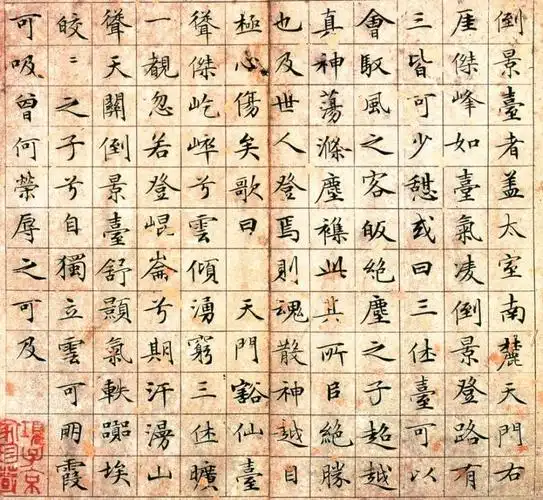 倒景臺者蓋太室南麓天門右
厓傑峰如臺氣凌倒景登路有
三皆可少憇或曰三休臺可以
會馭風之客皈絕塵之子超越
真神蕩滌塵襟此其所㠯絕勝
也及世人登焉則魂散神越目
極心傷矣歌曰 天門豁仙臺
聳傑屹崒兮雲傾湧窮三休曠
一覩忽若登崐崙兮期汗漫山
聳天關倒景臺舒顥氣軼埃
皎〻之子兮自獨立雲可朋霞
可吸曾何榮辱之可及
項子京
家珍藏